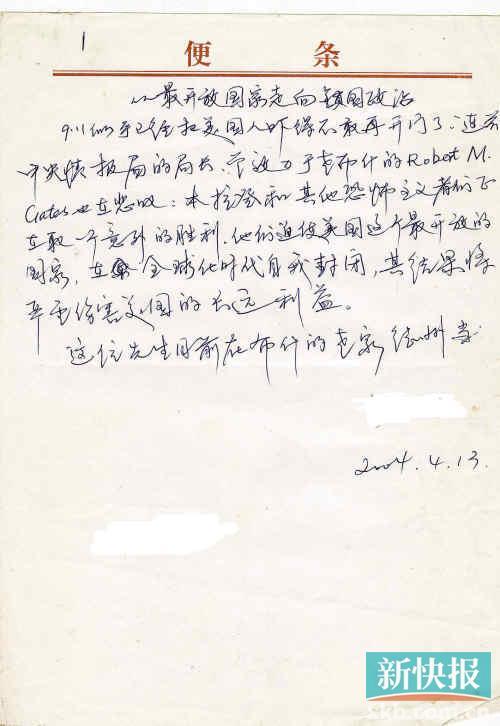 1
便 条
从最开放国家走向锁国政治
9.11似乎已经把美国人吓得不敢再开门了。连前
中央情报局的局长、曾效力于老布什的Robert M.
Gates也在悲叹：本拉登和其他恐怖主义者们正
在取一个意外的胜利。他们迫使美国这个最开放的
国家，在全球化时代自我封闭，其结果将
严重伤害美国的长远利益。
这位先生目前在布什的老家德州当
2004.4.13
新快报